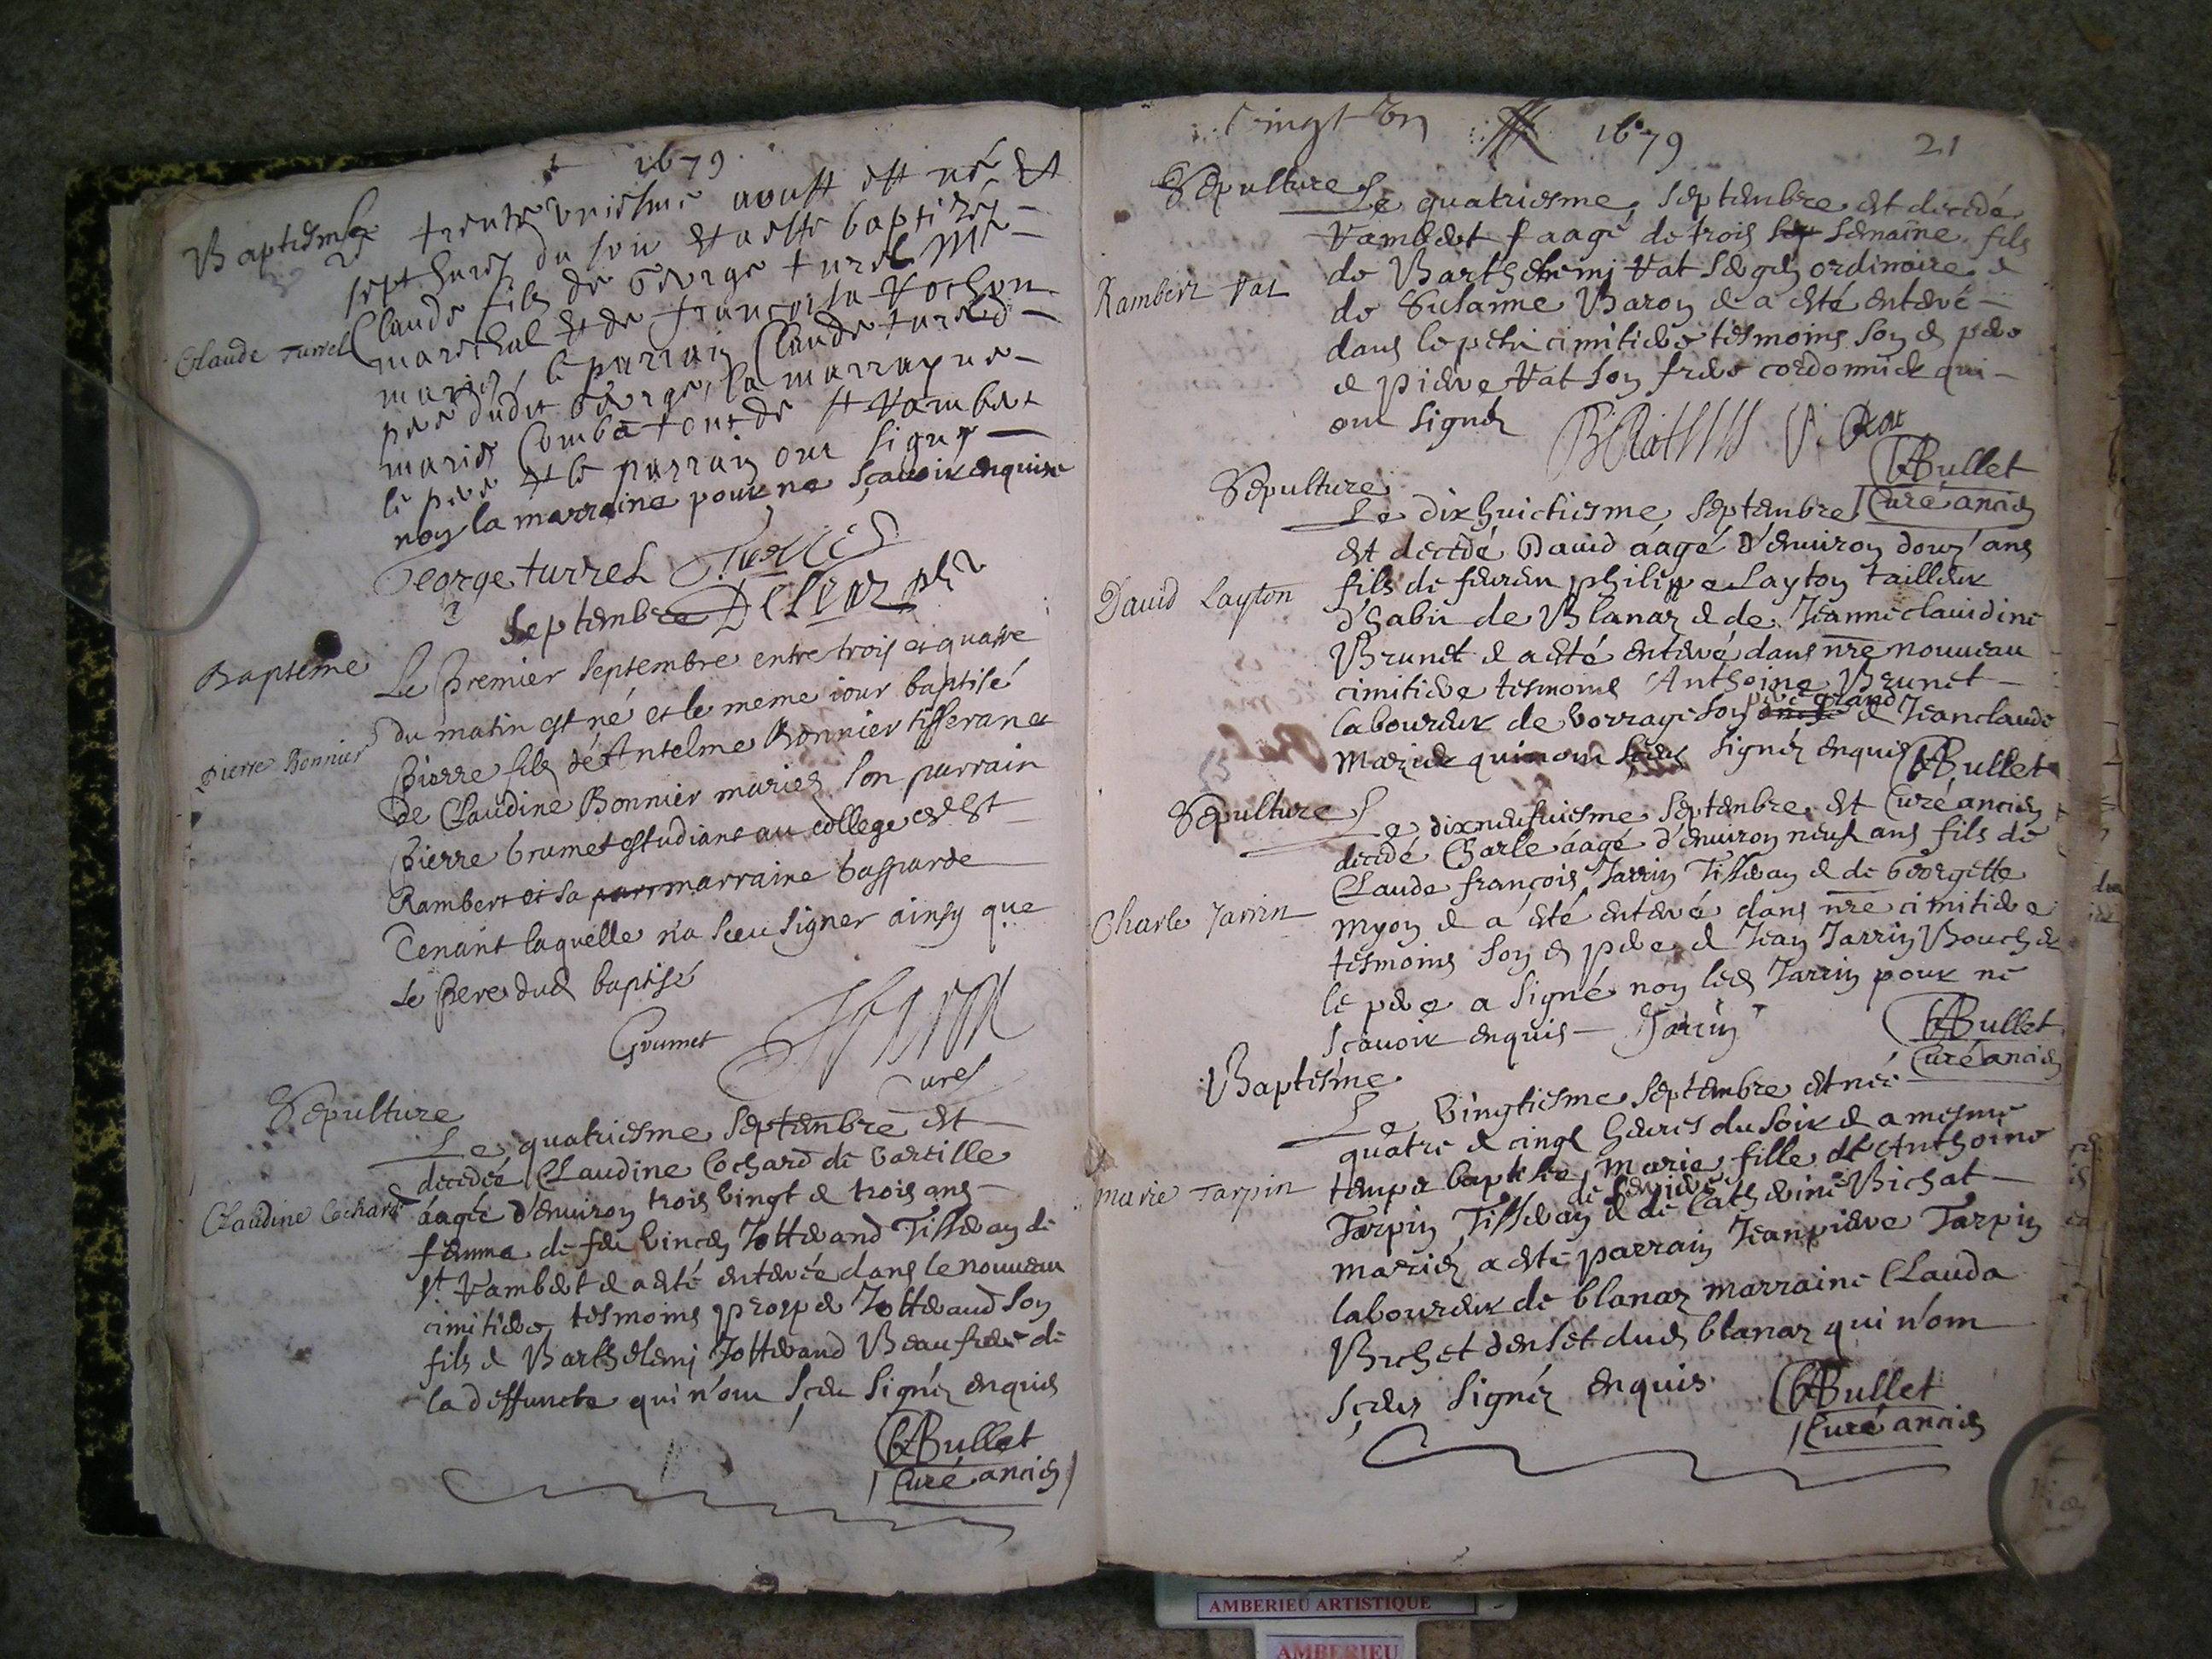 1679
Baptesme Le trente vniesme aoust est né et
sept heures du soir et a esté baptizé
Claude fils de George turrel Me
Claude Turrel
mareschal et de françoisa Rochon
mariés le parrain Claude turrel
pere dudit George, la marrayne
marie Comba tous de st Rambert
le pere et le parrain ont signé
non la marraine pour ne sçauoir enquise
George turrel Turrel
Septembre
Bapteme
Le Premier Septembre entre trois et quatre
du matin est né et le meme iour baptisé
Pierre Bonnier
Pierre fils de Antelme Bonnier tisseran et
de Claudine Bonnier mariés son parrain
Pierre Grumet estudiant au college de St
Rambert et sa parr marraine Gasparde
Tenant laquelle n'a sceu signer ainsy que
le Pere dud baptisé
Grumet
Sepulture
Le quatriesme Septembre est
decedée Claudine Cochard de
Claudine Cochard
áagée d'enuiron trois vingt et trois ans
femme de feu Vincen Jotterand Tisseran de
st Rambert et a esté enterée dans le nouueau
cimitiere tesmoins Prosper Jotterand son
fils et Barthelemi Jotterand Beaufrere de
la deffuncte qui n'ont sçeu signér enquis
Bullet
Curé ancien
Vingt Vn 1679 21
Sepulture Le quatriesme Septembre est decedé
Rambert aagé de trois sep semaine fils
Rambert Rat
de Barthelemi Rat Sergen ordinaire et
de Susanne Baron et a esté enteré
dans le petit cimitiere tesmoins son d pere
et Pierre Rat son frere cordonnier qui
ont signér
BRat P. Rat
Bullet
Curé ancien
Sepulture
Le dixhuictiesme Septembre
est decedé Dauid áagé d'enuiron douz' ans
David Layton
fils de feu Philippe Layton tailleur
d'habit de Blanaz et de Jeanne claudine
Brunet et a esté enteré dans nre nouueau
cimitiere tesmoins Anthoine Brunet
laboureur de Vorrage son oncle pere grand et Jeanclaude
Mazuir qui n'ont sçeus signér enquis Bullet
Curé ancien
Sepulture Le dixneufuiesme Septembre est
decedé Charle áagé d'enuiron neuf ans fils de
Claude françois Jarrin Tisseran et de Georgette
Charle Jarrin
Myon et a esté enteré dans nre cimitiere
tesmoins son d pere et Jean Jarrin Boucher
le pere a signé non led Jarrin pour ne
sçauoir enquis Jarrin
Bullet
Curé ancien
Baptesme
Le Vingtiesme Septembre est née
quatre et cinqs heures du soir et a mesme
Marie Tarpin
temps baptisée Marie fille de Anthoine
Tarpin Tisseran et de Catherine Bichat
mariés a esté parrain Jeanpierre Tarpin
laboureur de blanaz marraine Clauda
Bichet dud blanaz qui n'ont
sçeus signér enquis
Bullet
Curé ancien
AMBERIEU ARTISTIQUE
AMBERIEU